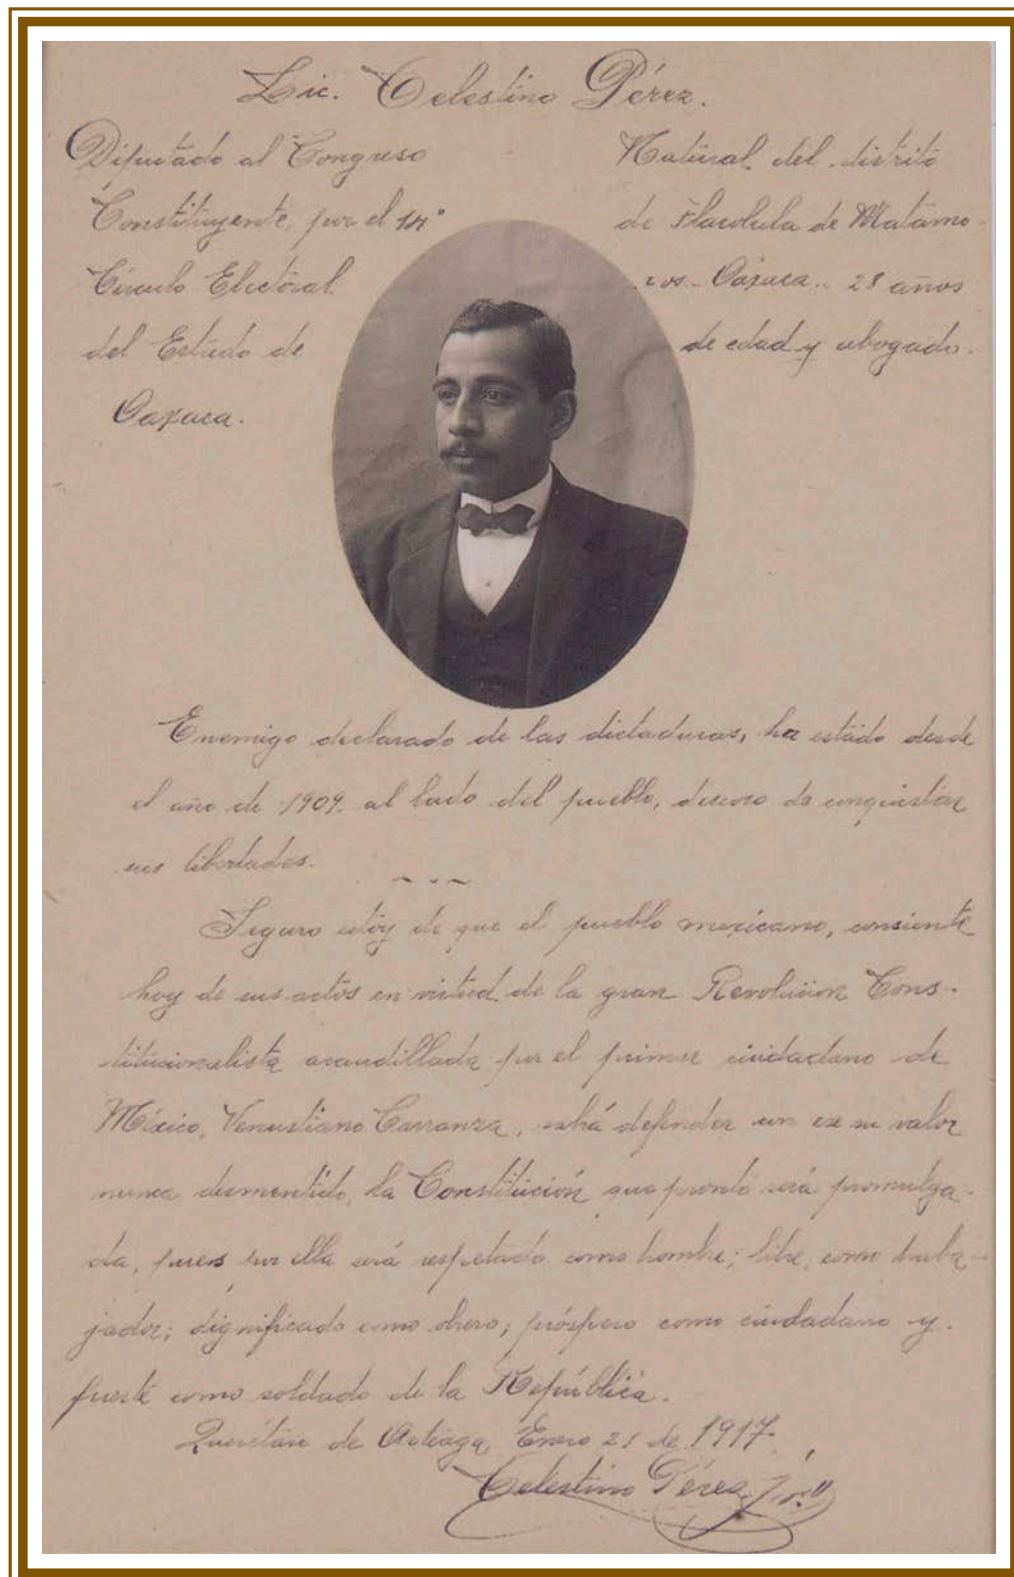 Lic. Celestino Pérez.
Diputado al Congreso
Constituyente, por el 14°
Círculo Electoral
del Estado de
Oaxaca.
Natural del distrito
de Tlacolula de Matamo-
ros - Oaxaca.. 28 años
de edad y abogado.
Enemigo declarado de las dictaduras, ha estado desde
el año de 1909. al lado del pueblo, deseoso de conquistar
sus libertades.
Seguro estoy de que el pueblo mexicano, consiente
hoy de sus actos en virtud de la gran Revolución Cons-
titucionalista acaudillada por el primer ciudadano de
México, Venustiano Carranza, sabrá defender con ese su valor
nunca desmentido, la Constitución que pronto será promulga-
da, pues por ella será respetado como hombre; libre, como traba-
jador; dignificado como obrero; próspero como ciudadano y
fuerte como soldado de la República.
Querétaro de Arteaga, Enero 21 de 1917.
Celestino Pérez